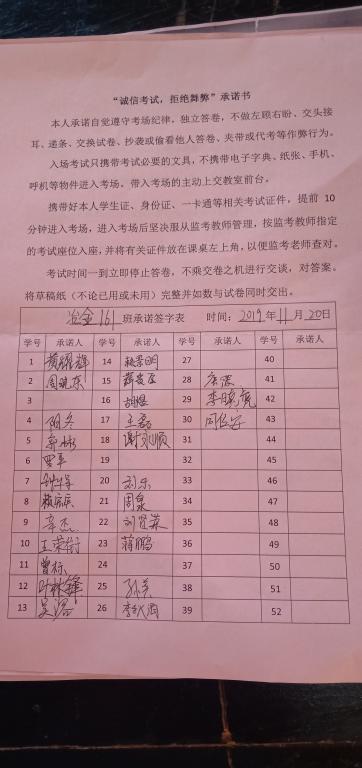 “诚信考试，拒绝舞弊”承诺书
本人承诺自觉遵守考场纪律，独立答卷，不做左顾右盼、交头接
耳、递条、交换试卷、抄袭或偷看他人答卷、夹带或代考等作弊行为。
入场考试只携带考试必要的文具，不携带电子字典、纸张、手机、
呼机等物件进入考场，带入考场的主动上交教室前台。
携带好本人学生证、身份证、一卡通等相关考试证件，提前 10
分钟进入考场，进入考场后坚决服从监考教师管理，按监考教师指定
的考试座位入座，并将有关证件放在课桌左上角，以便监考老师查对。
考试时间一到立即停止答卷，不乘交卷之机进行交谈，对答案。
将草稿纸（不论已用或未用）完整并如数与试卷同时交出。
冶金161班承诺签字表 时间：2019年11月20日
学号 承诺人 学号 承诺人 学号 承诺人 学号 承诺人
1 黄耀辉 14 27 40
2 周晓东 15 28 41
3 16 胡煜 29 李晓虎 42
4 阳冬 17 王磊 30 43
5 18 谢永顺 31 44
6 19 32 45
7 20 刘乐 33 46
8 21 周泉 34 47
9 辛杰 22 刘贤英 35 48
10 王荣衔 23 蒋鹏 36 49
11 曾标 24 37 50
12 叶林锋 25 孙昊 38 51
13 吴滔 26 39 52